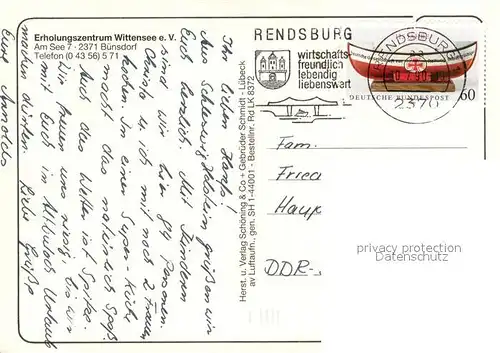 Erholungszentrum Wittensee e. V.
Am See 7 · 2371 Bünsdorf
Telefon (0 43 56) 5 71
Ihr lieben
Aus Schleswig Holstein grüßen wir
Euch herzlich. Mit Kindern
sind wir hier 84 Personen.
Christa u. ich mit noch 2 Frauen
kochen. In einer Super-Küche
macht das natürlich Spaß.
Auch das Wetter ist Spitze.
Wir freuen uns riesig, bis wir
mit Euch in Urlaub
machen dürfen. Liebe Grüße
Eure
Herst. u. Verlag Schöning & Co + Gebrüder Schmidt · Lübeck
av Luftaufn., gen. SH 1-44001 - Bestellnr. Rd LK 8372
RENDSBURG
wirtschafts-
freundlich
lebendig
liebenswert
RENDSBURG
2370
DEUTSCHE BUNDESPOST
60
Fam.
Haup
DDR-
privacy protection